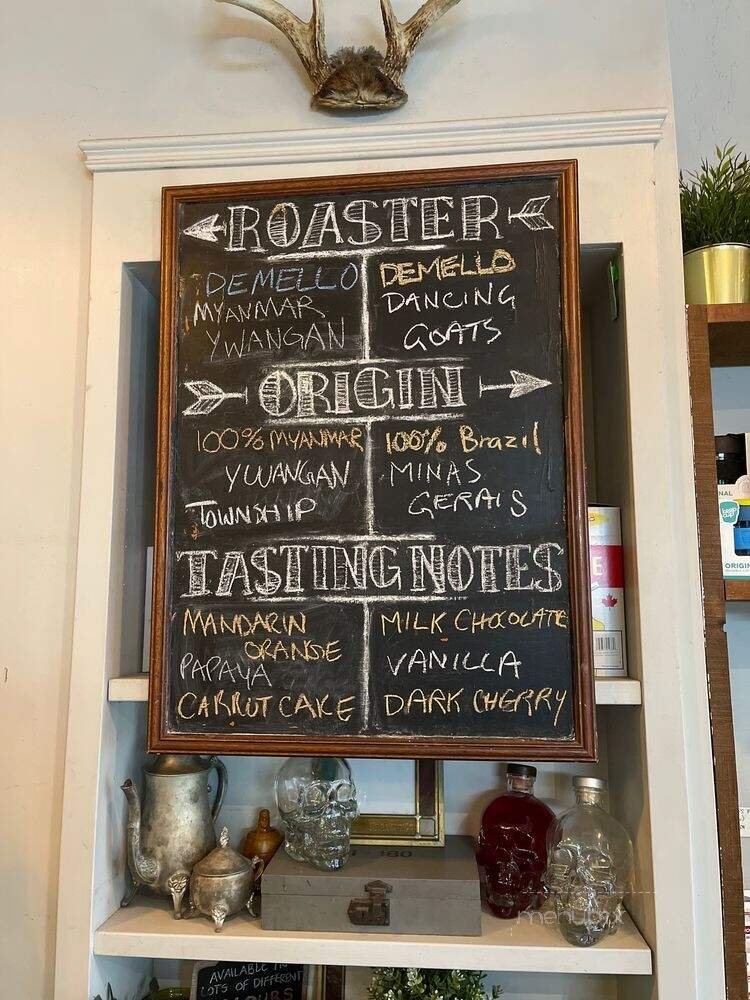 ROASTER
DEMELLO
MYANMAR
YWANGAN
DEMELLO
DANCING
GOATS
ORIGIN
100% MYANMAR
YWANGAN
TOWNSHIP
100% Brazil
MINAS
GERAIS
TASTING NOTES
MANDARIN
ORANGE
PAPAYA
CARROT CAKE
MILK CHOCOLATE
VANILLA
DARK CHERRY
180
AVAILABLE
LOTS OF DIFFERENT
NAL
keep
cup
ORIGIN
menu